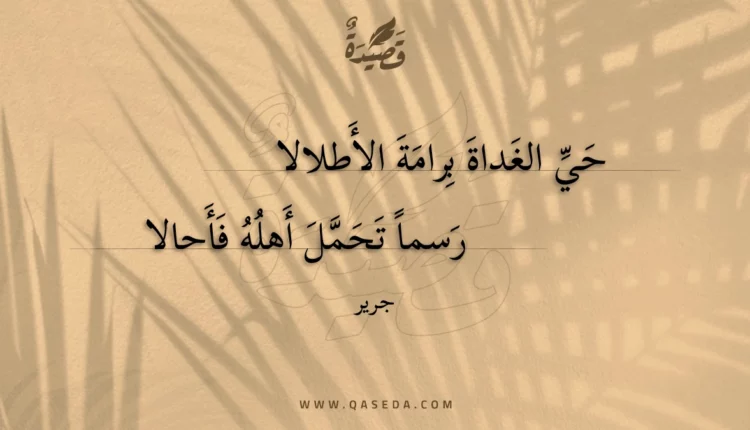 قَصِيدَةٌ
حَيِّ الغَداةَ بِرامَةَ الأَطلالا
رَسماً تَحَمَّلَ أَهلُهُ فَأَحالا
جرير
WWW.QASEDA.COM